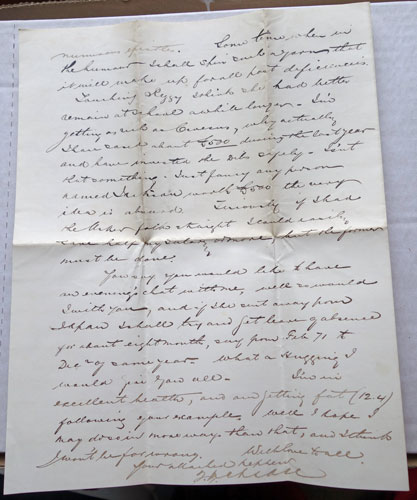 numerous epistles. Some time when in
the humour I shall spin such a yarn that
it will make up for all past deficiencies.
Touching Peggy I think she had better
remain at school a while longer. I'm
getting as rich as Croesus, why actually
I have saved about £500 during the last year
and have invested the safely. Isn't
that something. Just fancy any person
named worth £500 the very
idea is absurd. Seriously if I had
the straight I could easily
but the former
must be done.
You say you would like to have
an evening's chat with me, well so would
I with you, and if I'm sent away from
Japan I shall try and get leave of absence
for about eight month, say from Feb 71 to
Dec of same year. What a Hugging I
would give you all. I'm in
excellent health, and am getting fat (12.4)
following your example. Well I hope I
may do so in more ways than that, and I think
I won't be far wrong. With love to all
Your attached nephew